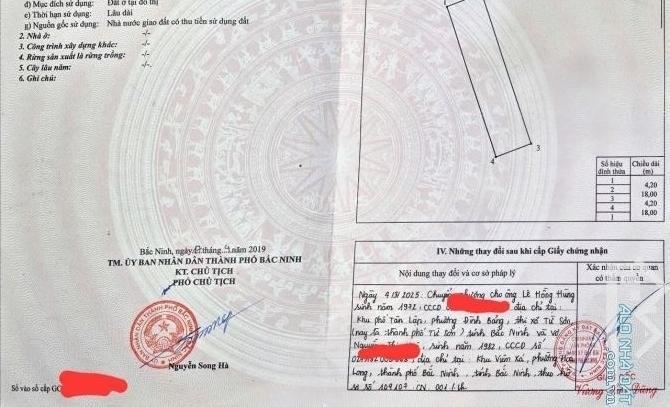 d) Mục đích sử dụng: Đất ở tại đô thị
e) Thời hạn sử dụng: Lâu dài
g) Nguồn gốc sử dụng: Nhà nước giao đất có thu tiền sử dụng đất
2. Nhà ở: -/-
3. Công trình xây dựng khác: -/-
4. Rừng sản xuất là rừng trồng: -/-
5. Cây lâu năm: -/-
6. Ghi chú:
3
4
Số hiệu đỉnh thửa
Chiều dài (m)
1
4,20
2
18,00
3
4,20
4
18,00
1
Bắc Ninh, ngày tháng năm 2019
TM. ỦY BAN NHÂN DÂN THÀNH PHỐ BẮC NINH
KT. CHỦ TỊCH
PHÓ CHỦ TỊCH
Nguyễn Song Hà
Số vào sổ cấp GC
IV. Những thay đổi sau khi cấp Giấy chứng nhận
Nội dung thay đổi và cơ sở pháp lý
Xác nhận của cơ quan có thẩm quyền
Ngày 2025: Chuyển nhượng cho ông Lê Hồng Hưng
sinh năm 1972, CCCD địa chỉ tại:
Khu phố Tân Lập, phường Đình Bảng, thị xã Từ Sơn
(nay là thành phố Từ Sơn) tỉnh Bắc Ninh và vợ
Nguyễn sinh năm 1982, CCCD số
địa chỉ tại: Khu Viêm Xá, phường Hòa
Long, thành phố Bắc Ninh, tỉnh Bắc Ninh, theo hồ
sơ số
Vương Văn Dũng
ALONHADAT
.com.vn